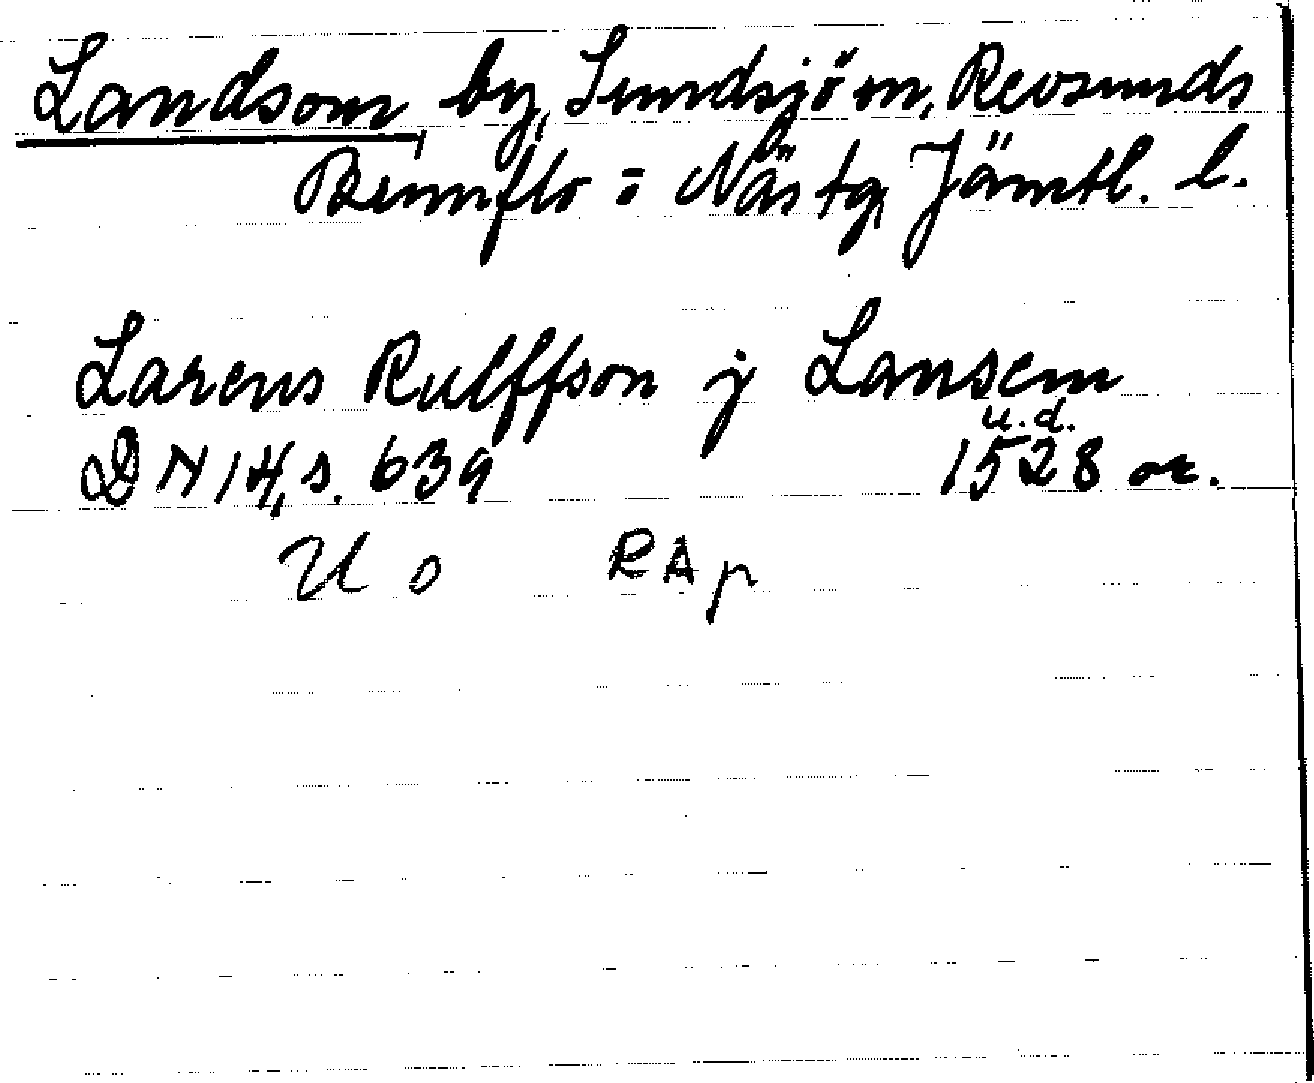 Landsom by, Sundsjö sn, Revsunds
Brunflo o Näs tg, Jämtl. l.
Larens Rulffson j Lansem
u.d.
DN 14, s. 639 1528 or.
U o RAp